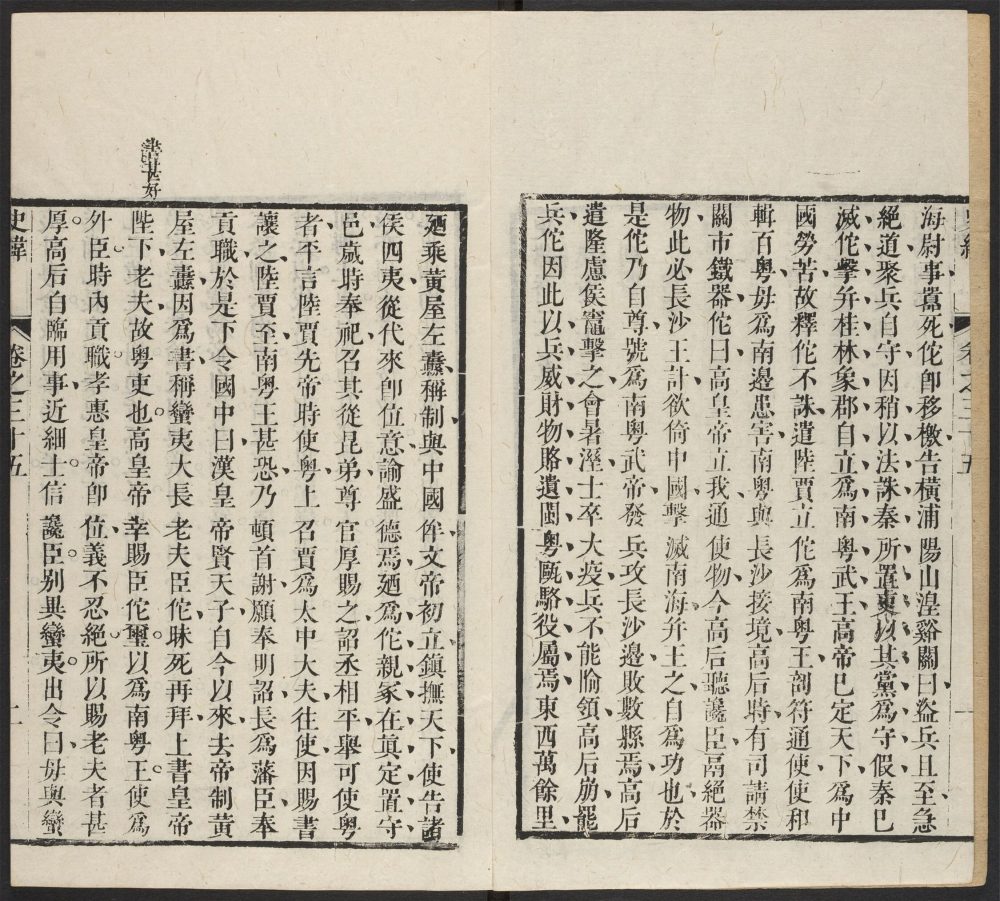 海尉事囂死佗即移檄告橫浦陽山湟谿關曰盜兵且至急
絕道聚兵自守因稍以法誅秦所置吏以其黨為守假秦已
滅佗擊并桂林象郡自立為南粵武王高帝已定天下為中
國勞苦故釋佗不誅遣陸賈立佗為南粵王剖符通使使和
輯百粵毋為南邊患害南粵與長沙接境高后時有司請禁
關市鐵器佗曰高皇帝立我通使物今高后聽讒臣鬲絕器
物此必長沙王計欲倚中國擊滅南海并王之自為功也於
是佗乃自尊號為南粵武帝發兵攻長沙邊敗數縣焉高后
遣隆慮侯竈擊之會暑溼士卒大疫兵不能隃領高后崩罷
兵佗因此以兵威財物賂遺閩粵甌駱役屬焉東西萬餘里
廼乘黃屋左纛稱制與中國侔文帝初立鎮撫天下使告諸
侯四夷從代來即位意諭盛德焉廼為佗親冢在真定置守
邑歲時奉祀召其從昆弟尊官厚賜之詔丞相平舉可使粵
者平言陸賈先帝時使粵上召賈為太中大夫往使因賜書
讓之陸賈至南粵王甚恐乃頓首謝願奉明詔長為藩臣奉
貢職於是下令國中曰漢皇帝賢天子自今以來去帝制黃
屋左纛因為書稱蠻夷大長老夫臣佗昧死再拜上書皇帝
陛下老夫故粵吏也高皇帝幸賜臣佗璽以為南粵王使為
外臣時內貢職孝惠皇帝即位義不忍絕所以賜老夫者甚
厚高后自臨用事近細士信讒臣別異蠻夷出令曰毋與蠻
史緯
卷之三十五
二
書甚好